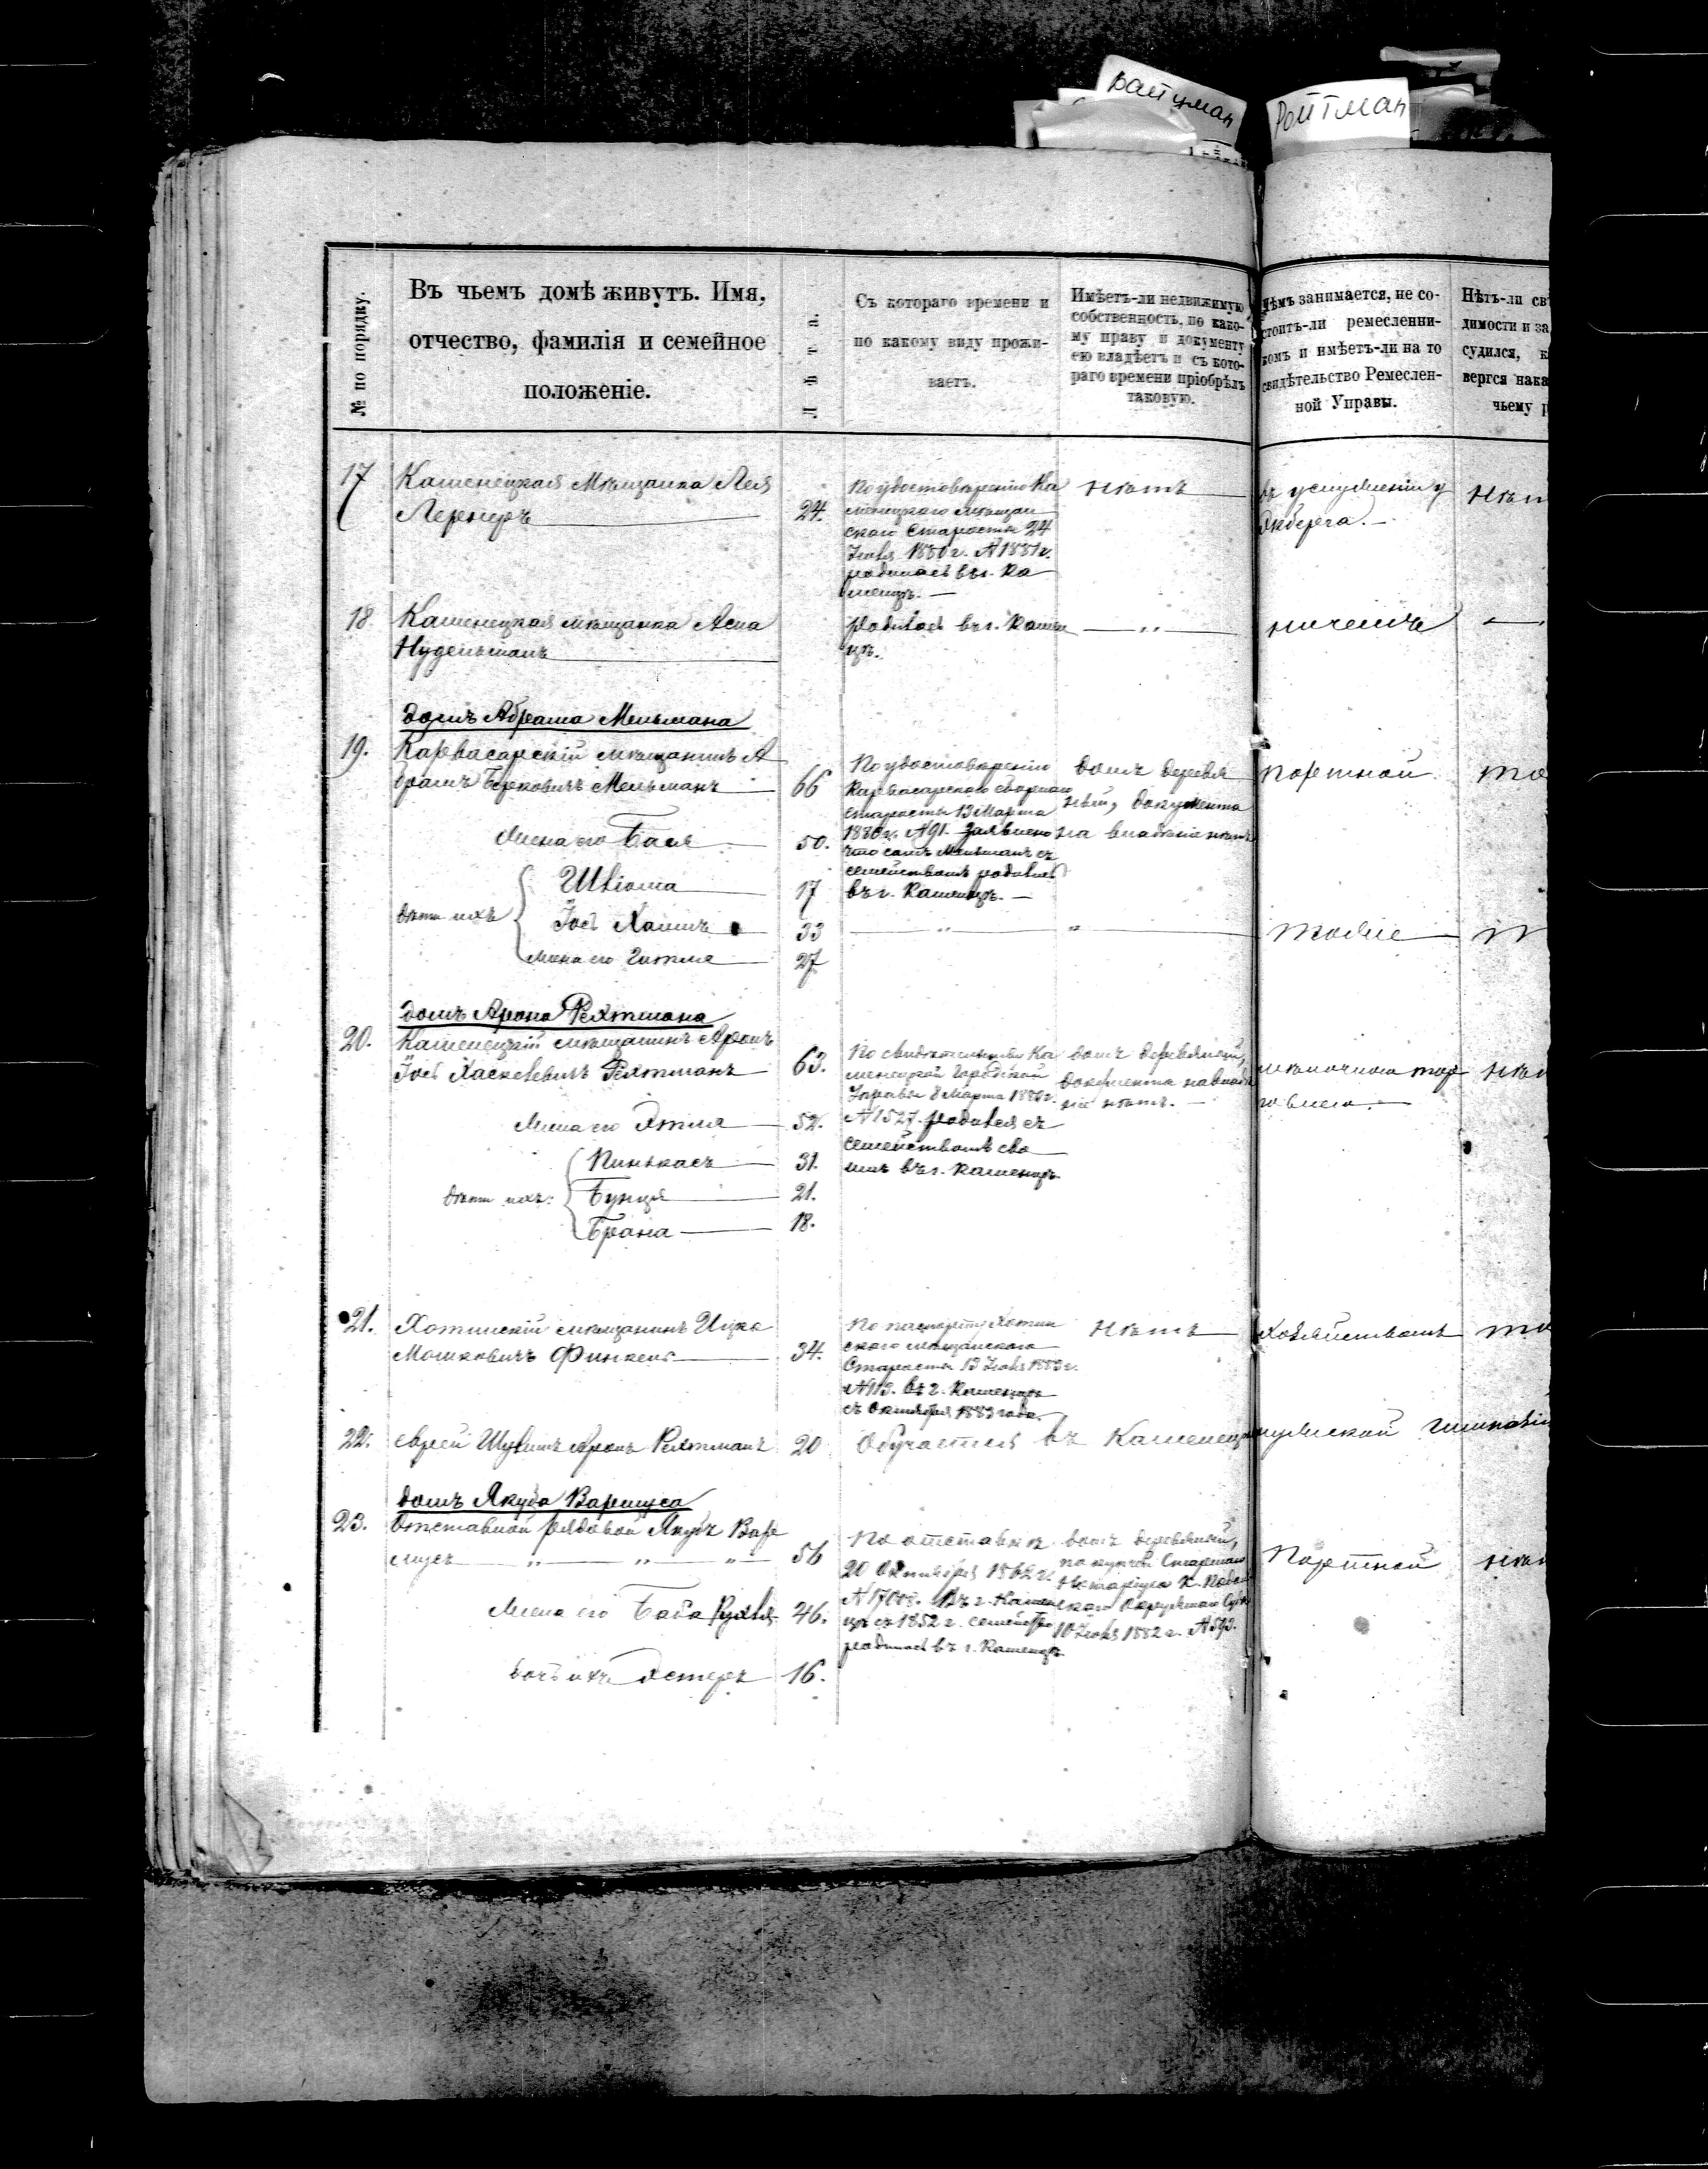 Ройтман
№ по порядку.
Въ чьемъ домѣ живутъ. Имя,
отчество, фамилія и семейное
положеніе.
Лѣта.
Съ котораго времени и
по какому виду прожи-
ваетъ.
Имѣетъ-ли недвижимую
собственность, по како-
му праву и документу
ею владѣетъ и съ кото-
раго времени пріобрѣлъ
таковую.
Чѣмъ занимается, не со-
стоитъ-ли ремесленни-
комъ и имѣетъ-ли на то
свидѣтельство Ремеслен-
ной Управы.
Нѣтъ-ли св
димости и за
судился, к
вергся нака
чьему р
17
Каменецкая мѣщанка Лея
Лернеръ
24.
По удостовѣренію Ка
менецкаго мѣщан
скаго Старосты 24
родилась въ г. Ка
менцѣ.
нѣтъ
въ услуженіи у
нѣт
18
Каменецкая мѣщанка
Нудельманъ
родилась въ г. Камен
цѣ.
ничемъ
домъ Абрама Мельмана
19.
Карвасарскій мѣщанинъ А
брамъ Берковичъ Мельманъ
66
По удостовѣренію
Карвасарскаго сборнаго
старосты 13 Марта
1880 г. №91. Заявлено
что самъ Мельманъ съ
семействомъ родился
въ г. Каменцѣ.
домъ деревян
ный, документа
на владѣніе нѣтъ
портной
то
жена его Бася
50.
дѣти ихъ
17
Іось Хаимъ
33
тоже
жена его Гитля
27
домъ Арона Рехтмана
20.
Каменецкій мѣщанинъ Аронъ
Іось Хаскелевичъ Рехтманъ
63.
По свидѣтельству Ка
менецкой Городской
Управы 8 Марта 188
№1527. родился съ
семействомъ сво
имъ въ г. Каменцѣ.
домъ деревянный,
документа на владѣ
ніе нѣтъ.
мѣлочною тор
говлею.
нѣт
жена его Этля
52.
дѣти ихъ:
Пинькасъ
31.
Бунця
21.
Брана
18.
21.
Хотинскій мѣщанинъ Ицко
Мошковичъ Финкель
34.
По паспорту Хотин
скаго мѣщанскаго
въ г. Каменцѣ
съ Октября 1883 года.
нѣтъ
Хозяйствомъ
то
22.
еврей Аронъ Рехтманъ
20
Обучается въ Каменец
мужской гимназіи
домъ Якуба Вармуса
23.
Отставной рядовой Якубъ Вар
мусъ
56
По отставкѣ
20 Октября 1862 г.
въ г. Камен
цѣ съ 1852 г. семейство
родилось въ г. Каменцѣ
домъ деревянный,
по купчей Старшаго
Нотаріуса К. Подол
скаго Окружнаго Суда
10 1882 г.
Портной
нѣт
жена его Баба Рухля
46.
дочь ихъ Эстеръ
16.